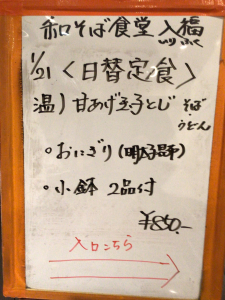 和そば食堂 入福
1/21 〈日替定食〉
温)甘あげ玉子とじ そば・うどん
・おにぎり(明太昆布)
・小鉢 2品付
¥850.-
入口こちら